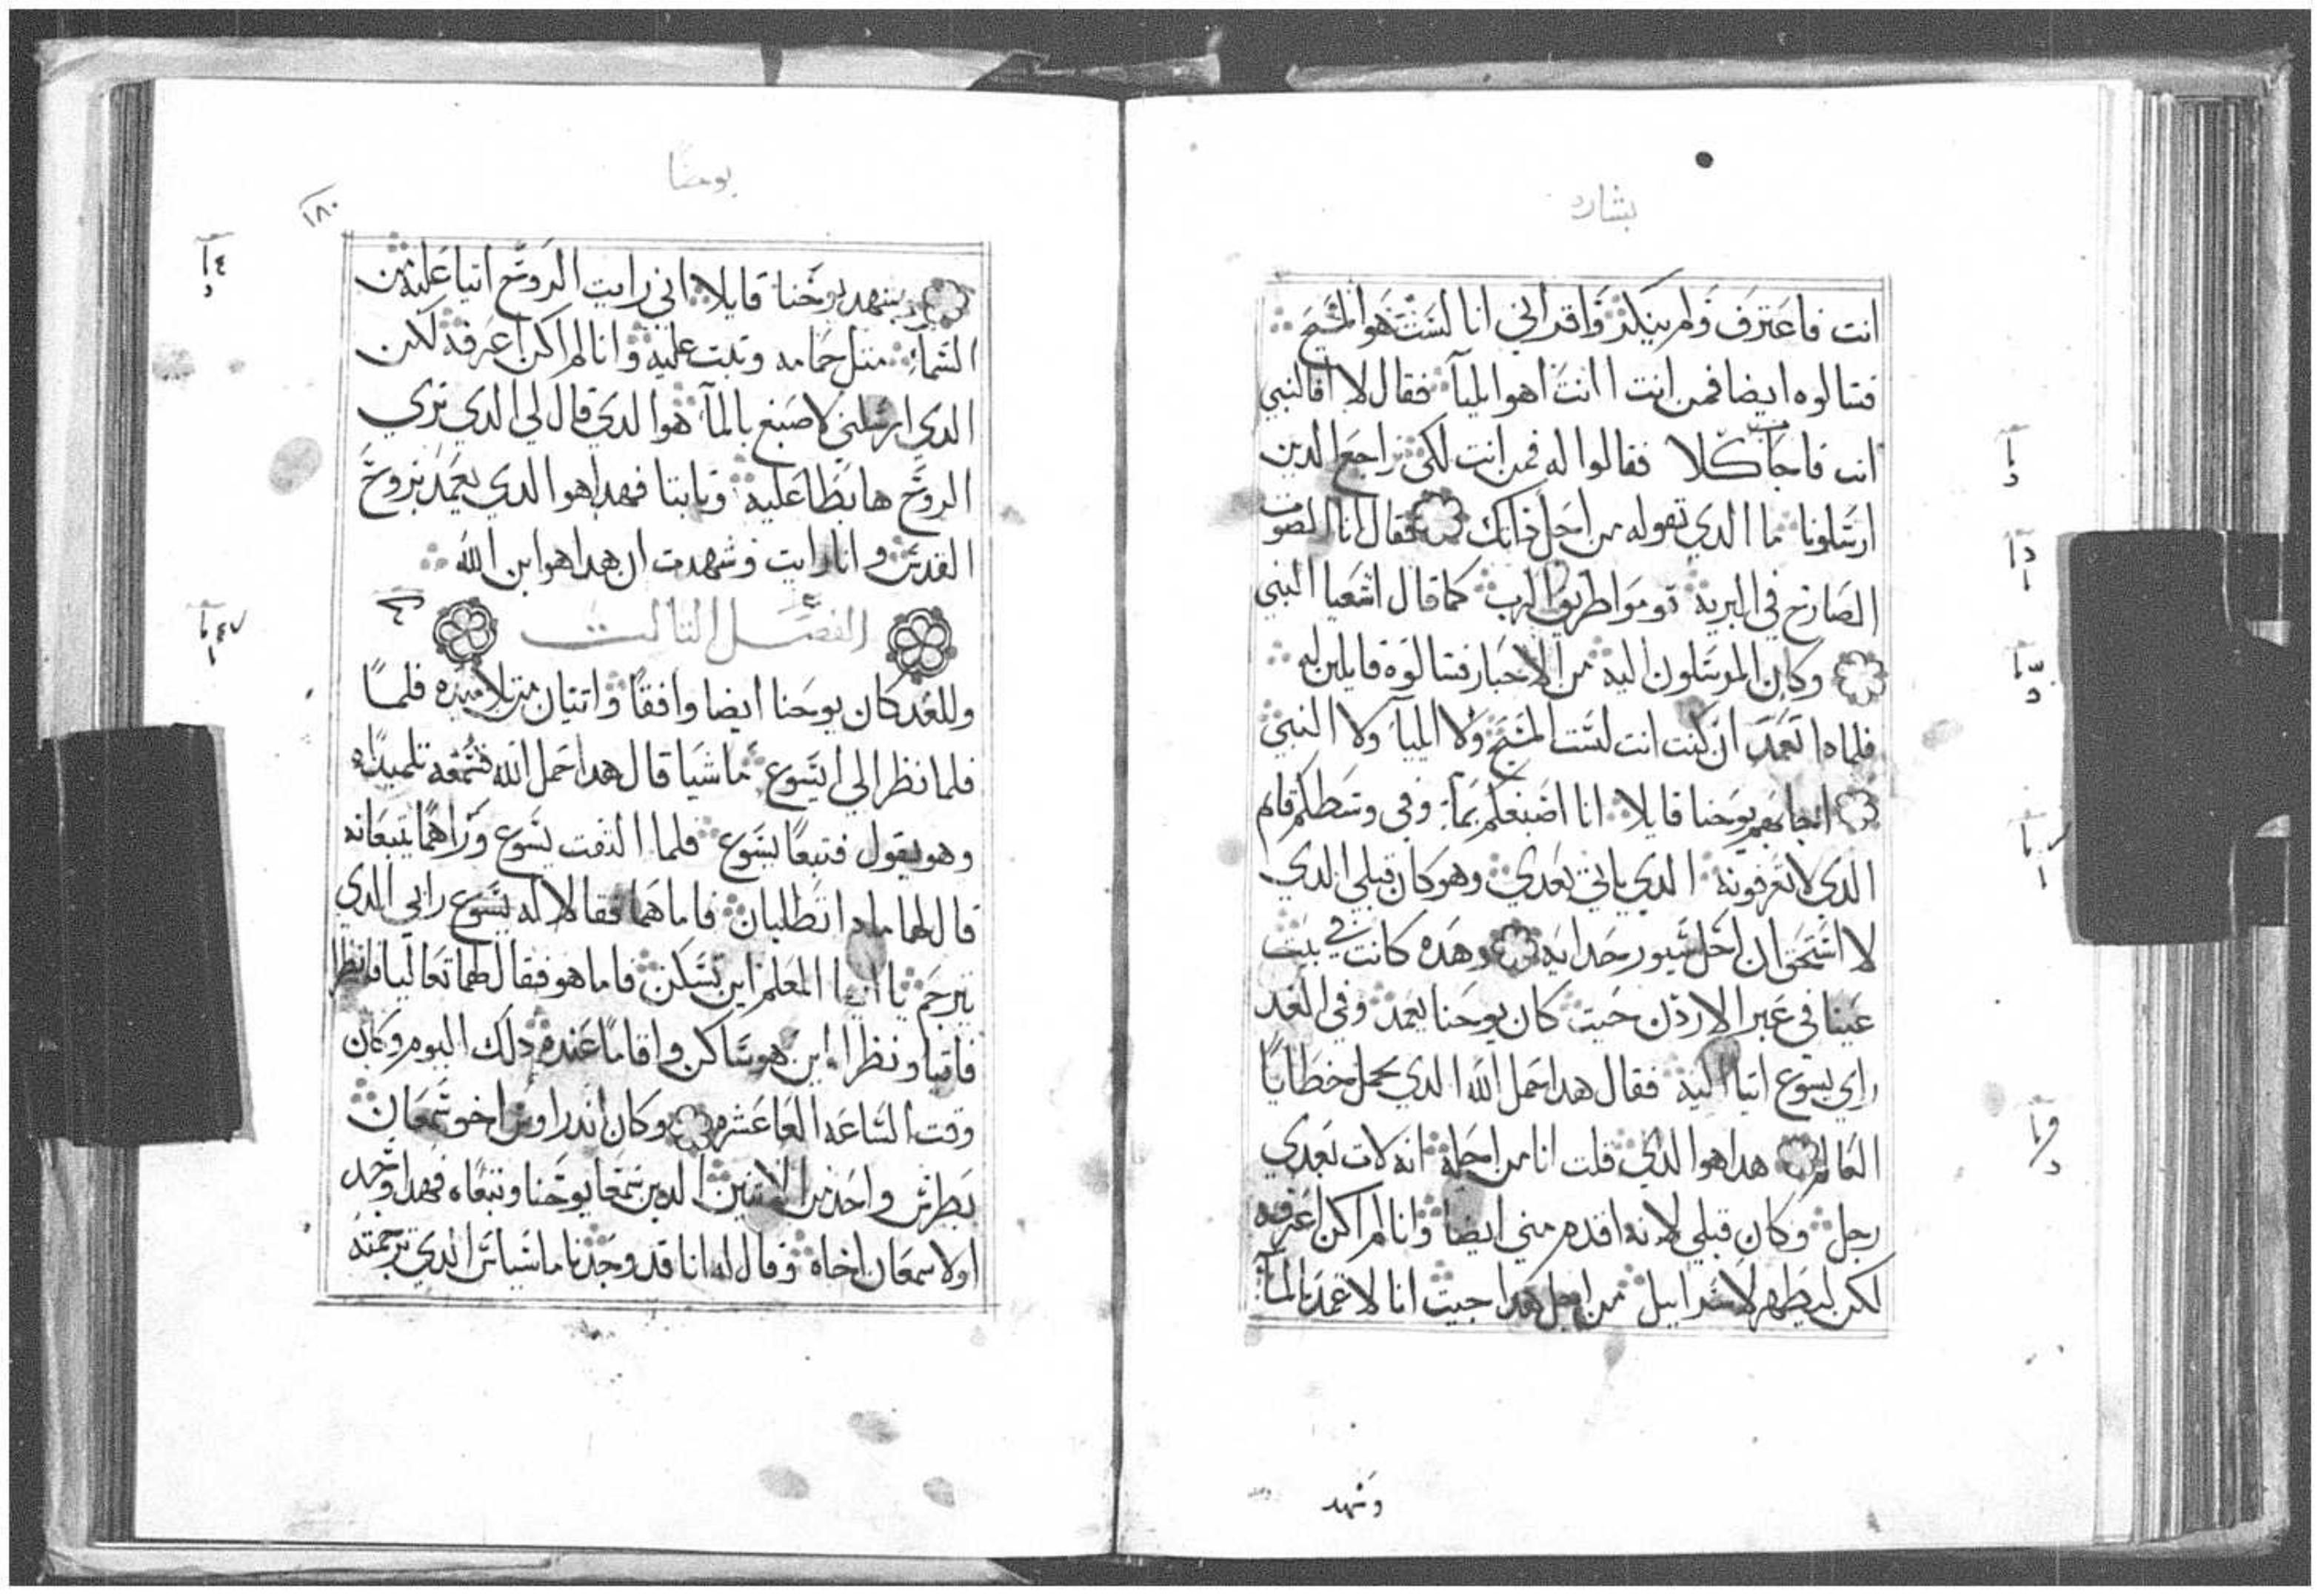 بشارة
انت فاعترف ولم ينكر واقر اني انا لست هو المسيح
فسالوه ايضا فمن انت اانت اهو ايليا فقال لا افالنبي
انت فاجاب كلا فقالوا له فمن انت لكي نراجع الدين
ارسلونا ما الدي تقوله من اجل داتك فقال انا الصوت
الصارخ في البريه قوموا طريق الرب كما قال اشعيا النبي
وكان المرسلون اليه من الاحبار فسالوه قايلين له
فلمادا تعمد ان كنت انت لست المسيح ولا ايليا ولا النبي
اجابهم يوحنا قايلا انا اصبغكم بما وفي وسطكم قام
الدي لا تعرفونه الدي ياتي بعدي وهو كان قبلي الدي
لا استحق ان احل سيور حدايه وهده كانت في بيت
عينا في عبر الاردن حيت كان يوحنا يعمد وفي الغد
راي يسوع اتيا اليه فقال هدا حمل الله الدي يحمل خطايا
العالم هدا هو الدي قلت انا من اجله انه لات بعدي
رجل وكان قبلي لانه اقدم مني ايضا وانا لم اكن اعرفه
لكن ليظهر لاسراييل من اجل هدا جيت انا لاعمد بالما
وشهد
يوحنا
١٨٠
وشهد يوحنا قايلا اني رايت الروح اتيا عليه من
السما متل حمامه وتبت عليه وانا لم اكن اعرفه لكن
الدي ارسلني لاصبغ بالما هو الدي قال لي الدي تري
الروح هابطا عليه وتابتا فهدا هو الدي يعمد بروح
القدس وانا رايت وشهدت ان هدا هو ابن الله
الفصل التالت
وللغد كان يوحنا ايضا واقفا واتنان من تلاميده فلما
فلما نظر الي ايسوع ماشيا قال هدا حمل الله فسمعه تلميداه
وهو يقول فتبعا يسوع فلما التفت يسوع وراهما يتبعانه
قال لهما مادا تطلبان فاما هما فقالا له يسوع رابي الدي
يترجم يا ايها المعلم اين تسكن فاما هو فقال لهما تعاليا فانظرا
فاتيا ونظرا اين هو ساكن واقاما عنده دلك اليوم وكان
وقت الساعه العاعشره وكان اندراوس اخو سمعان
بطرس واحد من الاتنين الدين سمعا يوحنا وتبعاه فهدا وجد
اولا سمعان اخاه وقال له انا قد وجدنا ماسياس الدي ترجمته